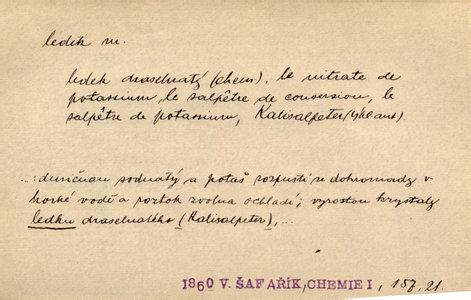 ledek m.
ledek draselnatý (chem), le nitrate de
potassium, le salpêtre de conversion, le
salpêtre de potassium, Kalisalpeter
...: dusičnan sodnatý a potaš rozpustí se dohromady v
horké vodě a roztok zvolna ochladí; vyrostou krystaly
ledku draselnatého (Kalisalpeter), ...
1860 V. ŠAFAŘÍK, CHEMIE I, 157, 21.